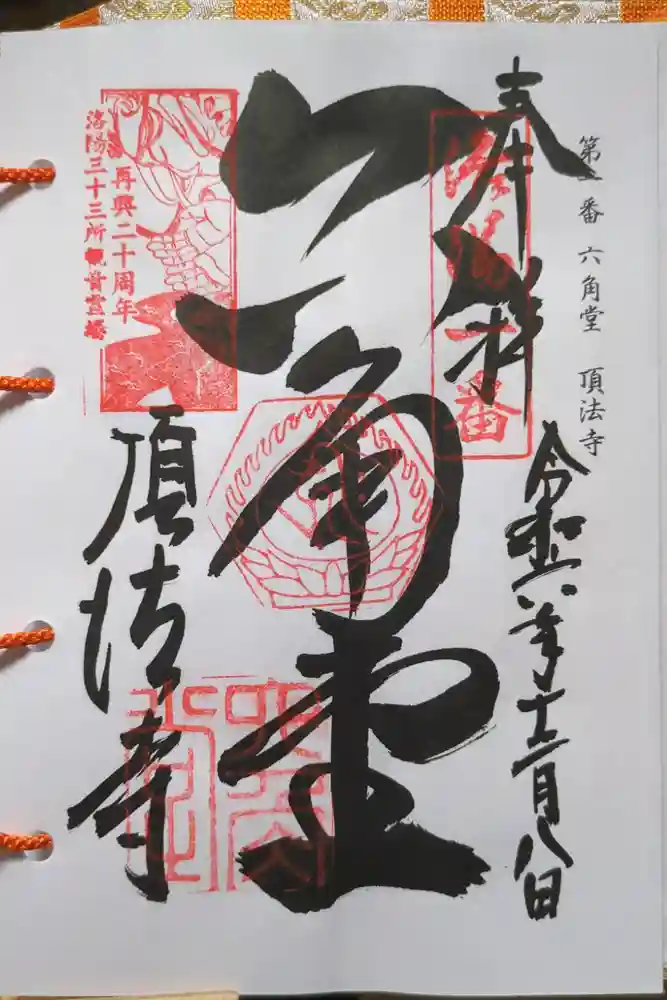 第一番 六角堂 頂法寺
奉拝
令和六年十二月八日
洛陽一番
六角堂
再興二十周年
洛陽三十三所観音霊場
頂法寺